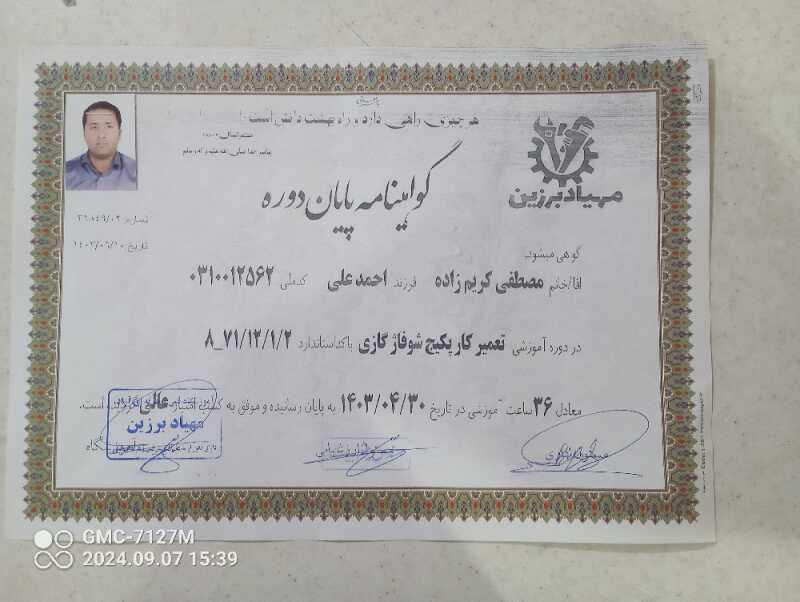 هر چیزی راهی دارد و راه بهشت دانش است
پیامبر خدا صلی الله علیه و آله و سلم
مهیاد برزین
گواهینامه پایان دوره
شماره: ۳۶۸۴۹/۰۲
تاریخ: ۱۴۰۳/۰۶/۱۰
گوهی میشود
اقا/خانم مصطفی کریم زاده فرزند احمدعلی کدملی ۰۳۱۰۰۱۲۵۶۲
در دوره آموزشی تعمیر کار پکیج شوفاژ گازی با کداستاندارد ۸_۷۱/۱۲/۱/۲
معادل ۳۶ ساعت آموزشی در تاریخ ۱۴۰۳/۰۴/۳۰ به پایان رسانیده و موفق به کسب عالی است.
مهیاد برزین
GMC-7127M
2024.09.07 15:39